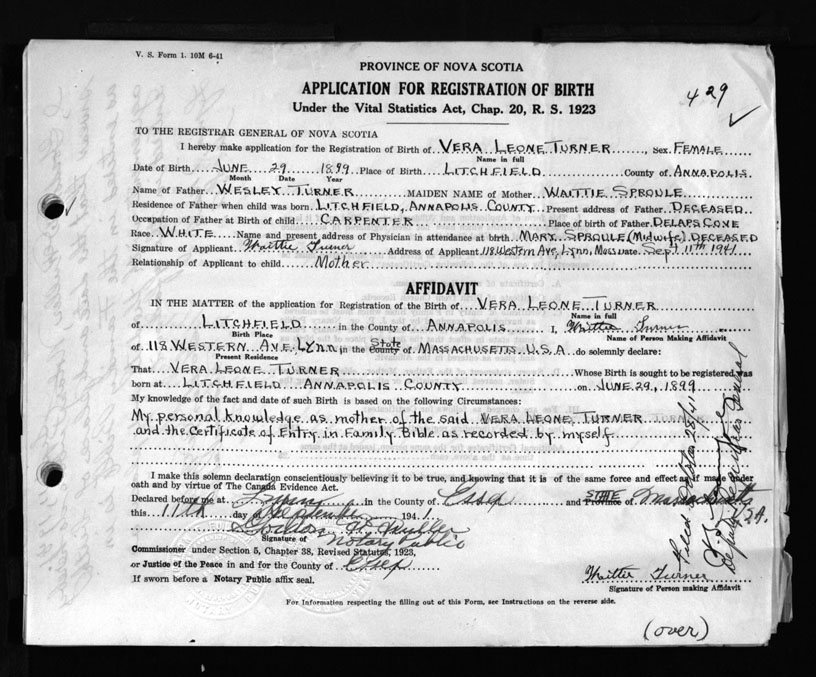 V. S. Form 1. 10M 6-41
PROVINCE OF NOVA SCOTIA
APPLICATION FOR REGISTRATION OF BIRTH
Under the Vital Statistics Act, Chap. 20, R. S. 1923
429
TO THE REGISTRAR GENERAL OF NOVA SCOTIA
I hereby make application for the Registration of Birth of VERA LEONE TURNER, Sex FEMALE
Name in full
Date of Birth JUNE 29 1899 Place of Birth LITCHFIELD County of ANNAPOLIS
Month Date Year
Name of Father WESLEY TURNER MAIDEN NAME of Mother WAITTIE SPROULE
Residence of Father when child was born LITCHFIELD, ANNAPOLIS COUNTY Present address of Father DECEASED
Occupation of Father at Birth of child CARPENTER Place of birth of Father DELAPS COVE
Race WHITE Name and present address of Physician in attendance at birth MARY SPROULE (Midwife) DECEASED
Signature of Applicant Waittie Turner Address of Applicant 118 Western Ave, Lynn, Mass Date Sept 11th 1941
Relationship of Applicant to child Mother
AFFIDAVIT
IN THE MATTER of the application for Registration of the Birth of VERA LEONE TURNER
Name in full
of LITCHFIELD in the County of ANNAPOLIS I, Waittie Turner
Birth Place Name of Person Making Affidavit
of 118 WESTERN AVE. LYNN in the County State of MASSACHUSETTS U.S.A do solemnly declare:
Present Residence
That VERA LEONE TURNER Whose Birth is sought to be registered was
born at LITCHFIELD ANNAPOLIS COUNTY on JUNE 29, 1899
My knowledge of the fact and date of such Birth is based on the following Circumstances:
My personal knowledge as mother of the said VERA LEONE TURNER
and the Certificate of Entry in Family Bible as recorded by myself
I make this solemn declaration conscientiously believing it to be true, and knowing that it is of the same force and effect as if made under
oath and by virtue of The Canada Evidence Act.
Declared before me at Lynn in the County of Essex and Province STATE of Massachusetts
this 11th day of September 1941 U.S.A.
Signature of Notary Public
Commissioner under Section 5, Chapter 38, Revised Statutes, 1923,
or Justice of the Peace in and for the County of Essex
If sworn before a Notary Public affix seal.
Waittie Turner
Signature of Person making Affidavit
Filed October 28/41
Deputy Registrar General
For Information respecting the filling out of this Form, see Instructions on the reverse side.
(over)